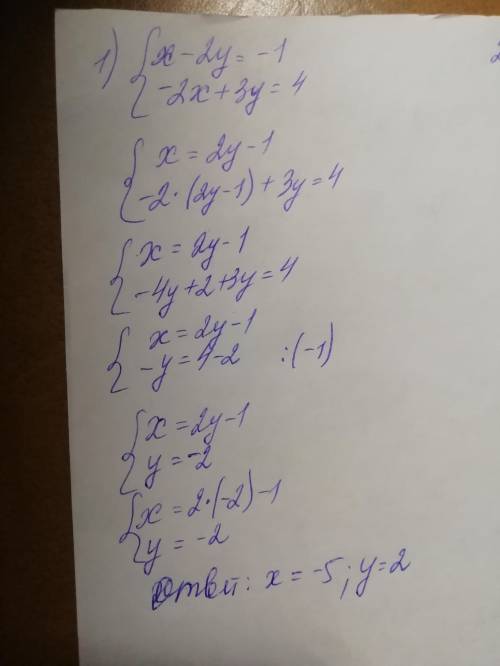 1) { x - 2y = -1
-2x + 3y = 4
{ x = 2y - 1
-2·(2y-1) + 3y = 4
{ x = 2y - 1
-4y + 2 + 3y = 4
{ x = 2y - 1
-y = 4 - 2 :(-1)
{ x = 2y - 1
y = -2
{ x = 2·(-2) - 1
y = -2
Ответ: x = -5; y = 2